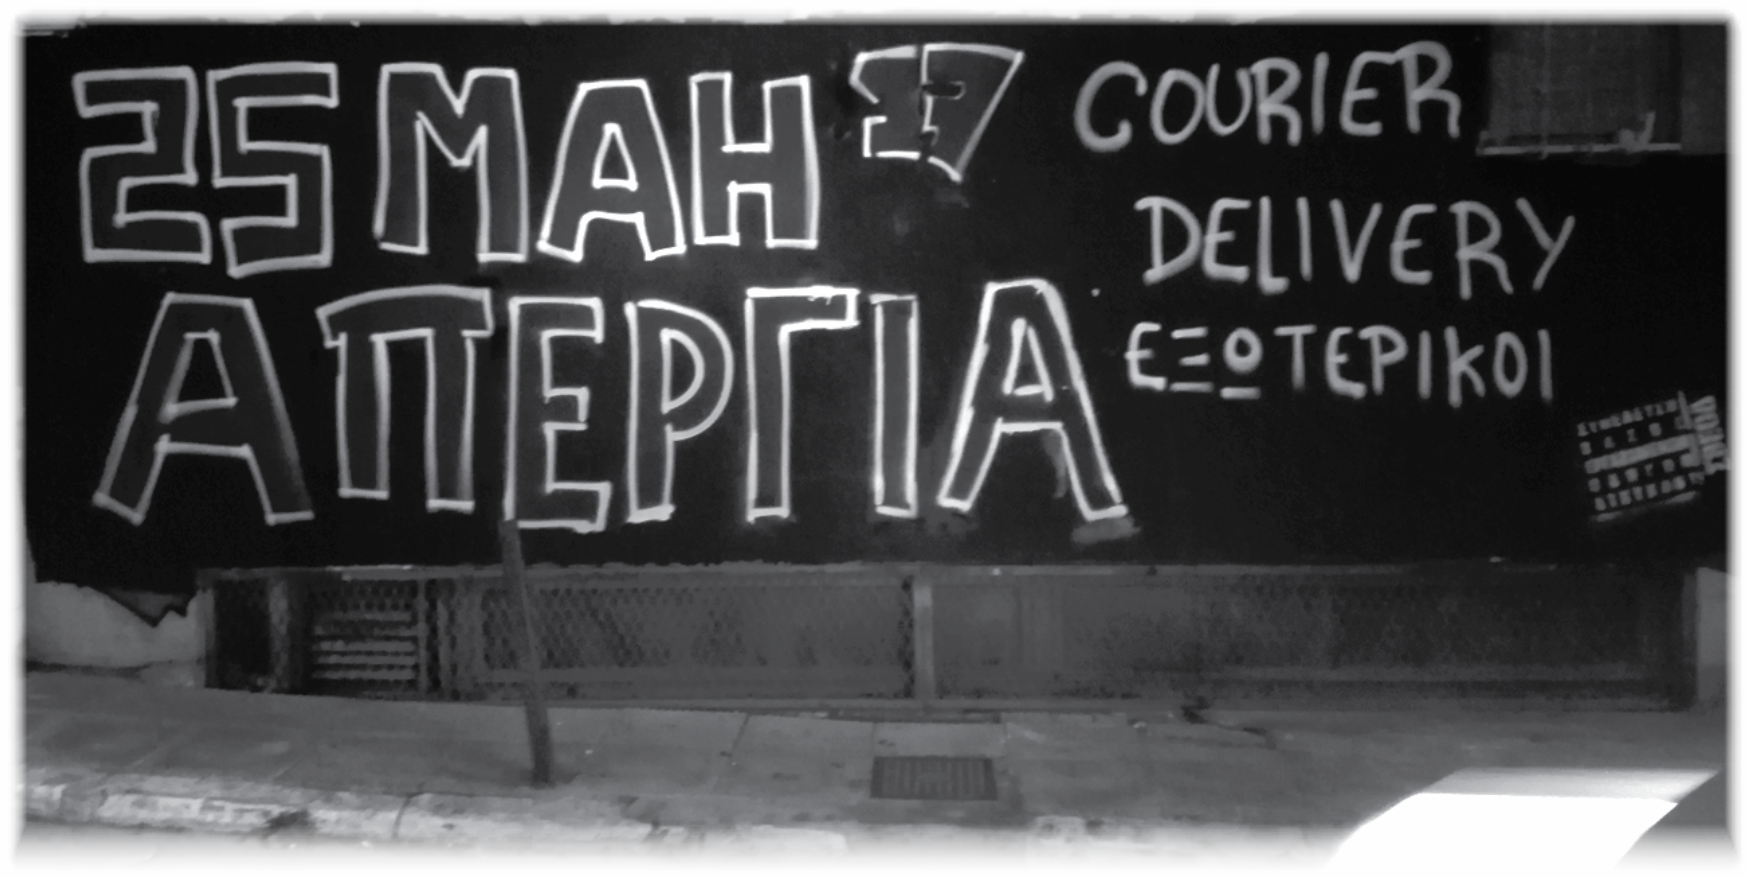 25 ΜΑΗ
ΑΠΕΡΓΙΑ
COURIER
DELIVERY
ΕΞΩΤΕΡΙΚΟΙ